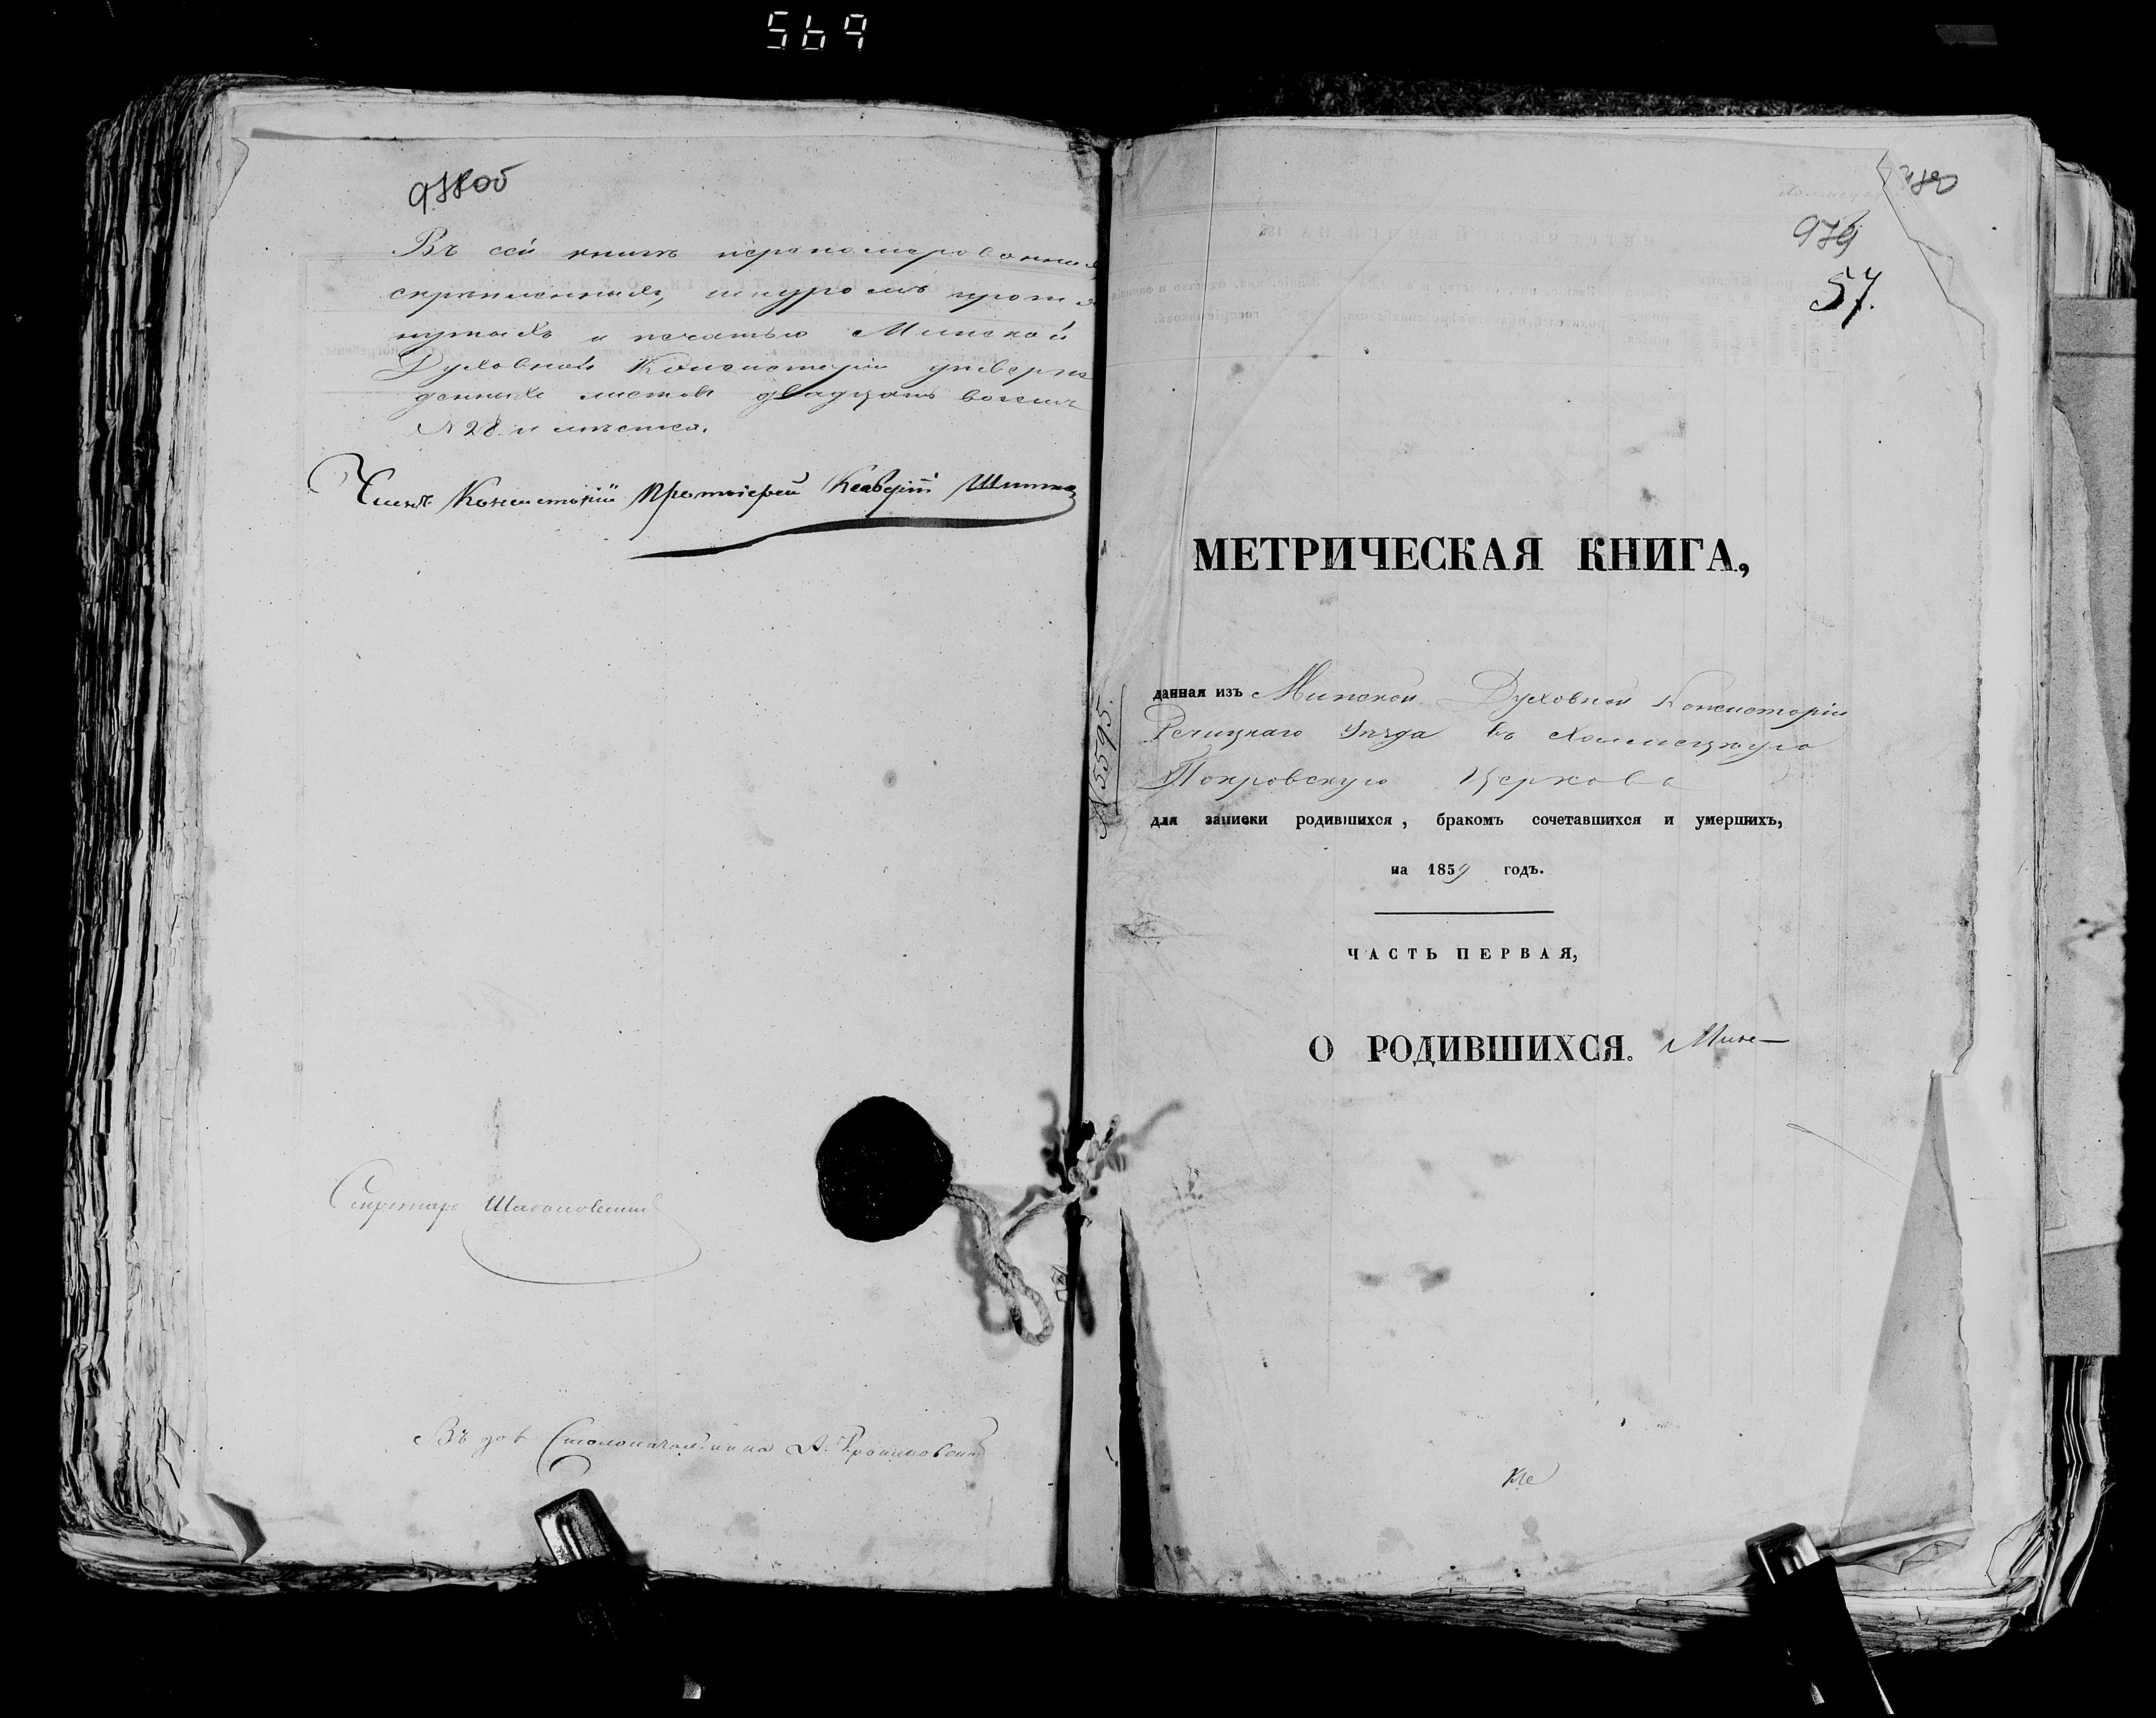 569
978об
Въ сей книгѣ перенумерованныхъ
скрѣпленныхъ, шнуромъ протя
нутыхъ и печатью Минской
Духовной Консисторіи утверж
денныхъ листовъ двадцать восемь
№ 28. имѣется.
Членъ Консисторіи Протоіерей
Секретарь
Въ дол Столоначальника А.
979
57.
МЕТРИЧЕСКАЯ КНИГА,
данная изъ Минской Духовной Консисторіи
Речицкаго Уѣзда въ Холмецкую
Покровскую Церковь
для записки родившихся, бракомъ сочетавшихся и умершихъ,
на 1859 годъ.
ЧАСТЬ ПЕРВАЯ,
О РОДИВШИХСЯ.
№ 5595.